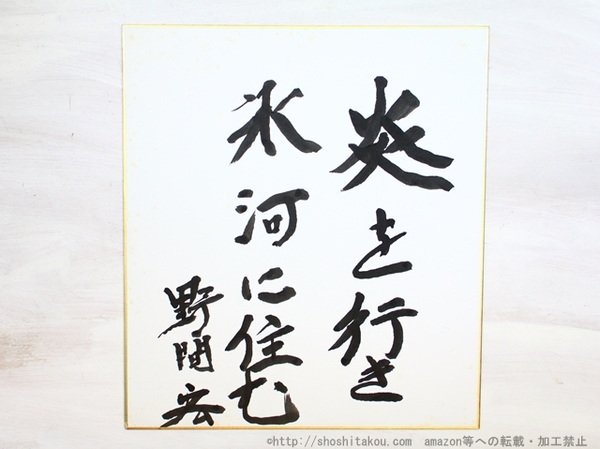 炎を行き
氷河に住む
野間宏
©http://shoshitakou.com amazon等への転載・加工禁止